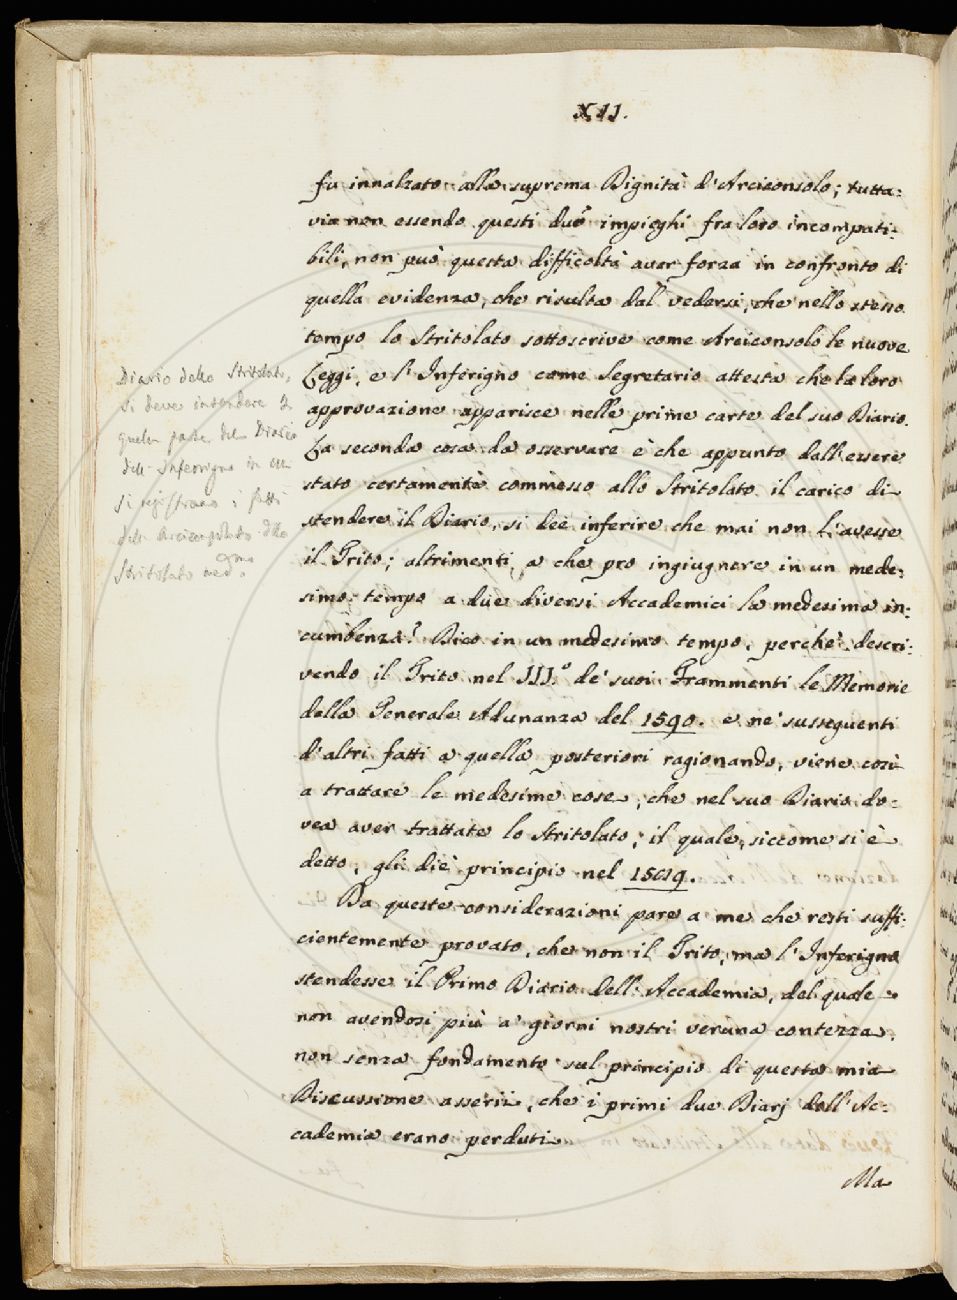 XII.
fu innalzato alla suprema Dignità d'Arciconsolo; tutta:
via non essendo questi due impieghi fra loro incompati:
bili, non può questa difficoltà aver forza in confronto di
quella evidenza, che risulta dal vedersi, che nello stesso
tempo lo Stritolato sottoscrive come Arciconsolo le nuove
Leggi, e l'Inferigno come Segretario attesta che la loro
approvazione apparisce nelle prime carte del suo Diario.
La seconda cosa da osservare è che appunto dall'essere
stato certamente commesso allo Stritolato il carico di
stendere il Diario, si dee inferire che mai non l'avesse
il Trito; altrimenti, a che pro ingiugnere in un mede:
simo tempo a due diversi Accademici la medesima in:
cumbenza? Dico in un medesimo tempo, perchè descri:
vendo il Trito nel III.º de' suoi Frammenti le Memorie
della Generale Adunanza del 1590. e ne' susseguenti
d'altri fatti a quella posteriori ragionando, viene così
a trattare le medesime cose, che nel suo Diario do:
vea aver trattate lo Stritolato; il quale, siccome si è
detto, gli diè principio nel 1589.
Da queste considerazioni pare a me che resti suffi:
cientemente provato, che non il Trito, ma l'Inferigno
stendesse il Primo Diario dell'Accademia, del quale
non avendosi più a' giorni nostri veruna contezza,
non senza fondamento sul principio di questa mia
Discussione asserii, che i primi due Diarj dell'Ac:
cademia erano perduti.
Ma
Diario dello Stritolato,
si deve intendere
quella parte del Diario
dell'Inferigno in cui
si registrano i fatti
dell'Arciconsolato dello
Stritolato med.mo